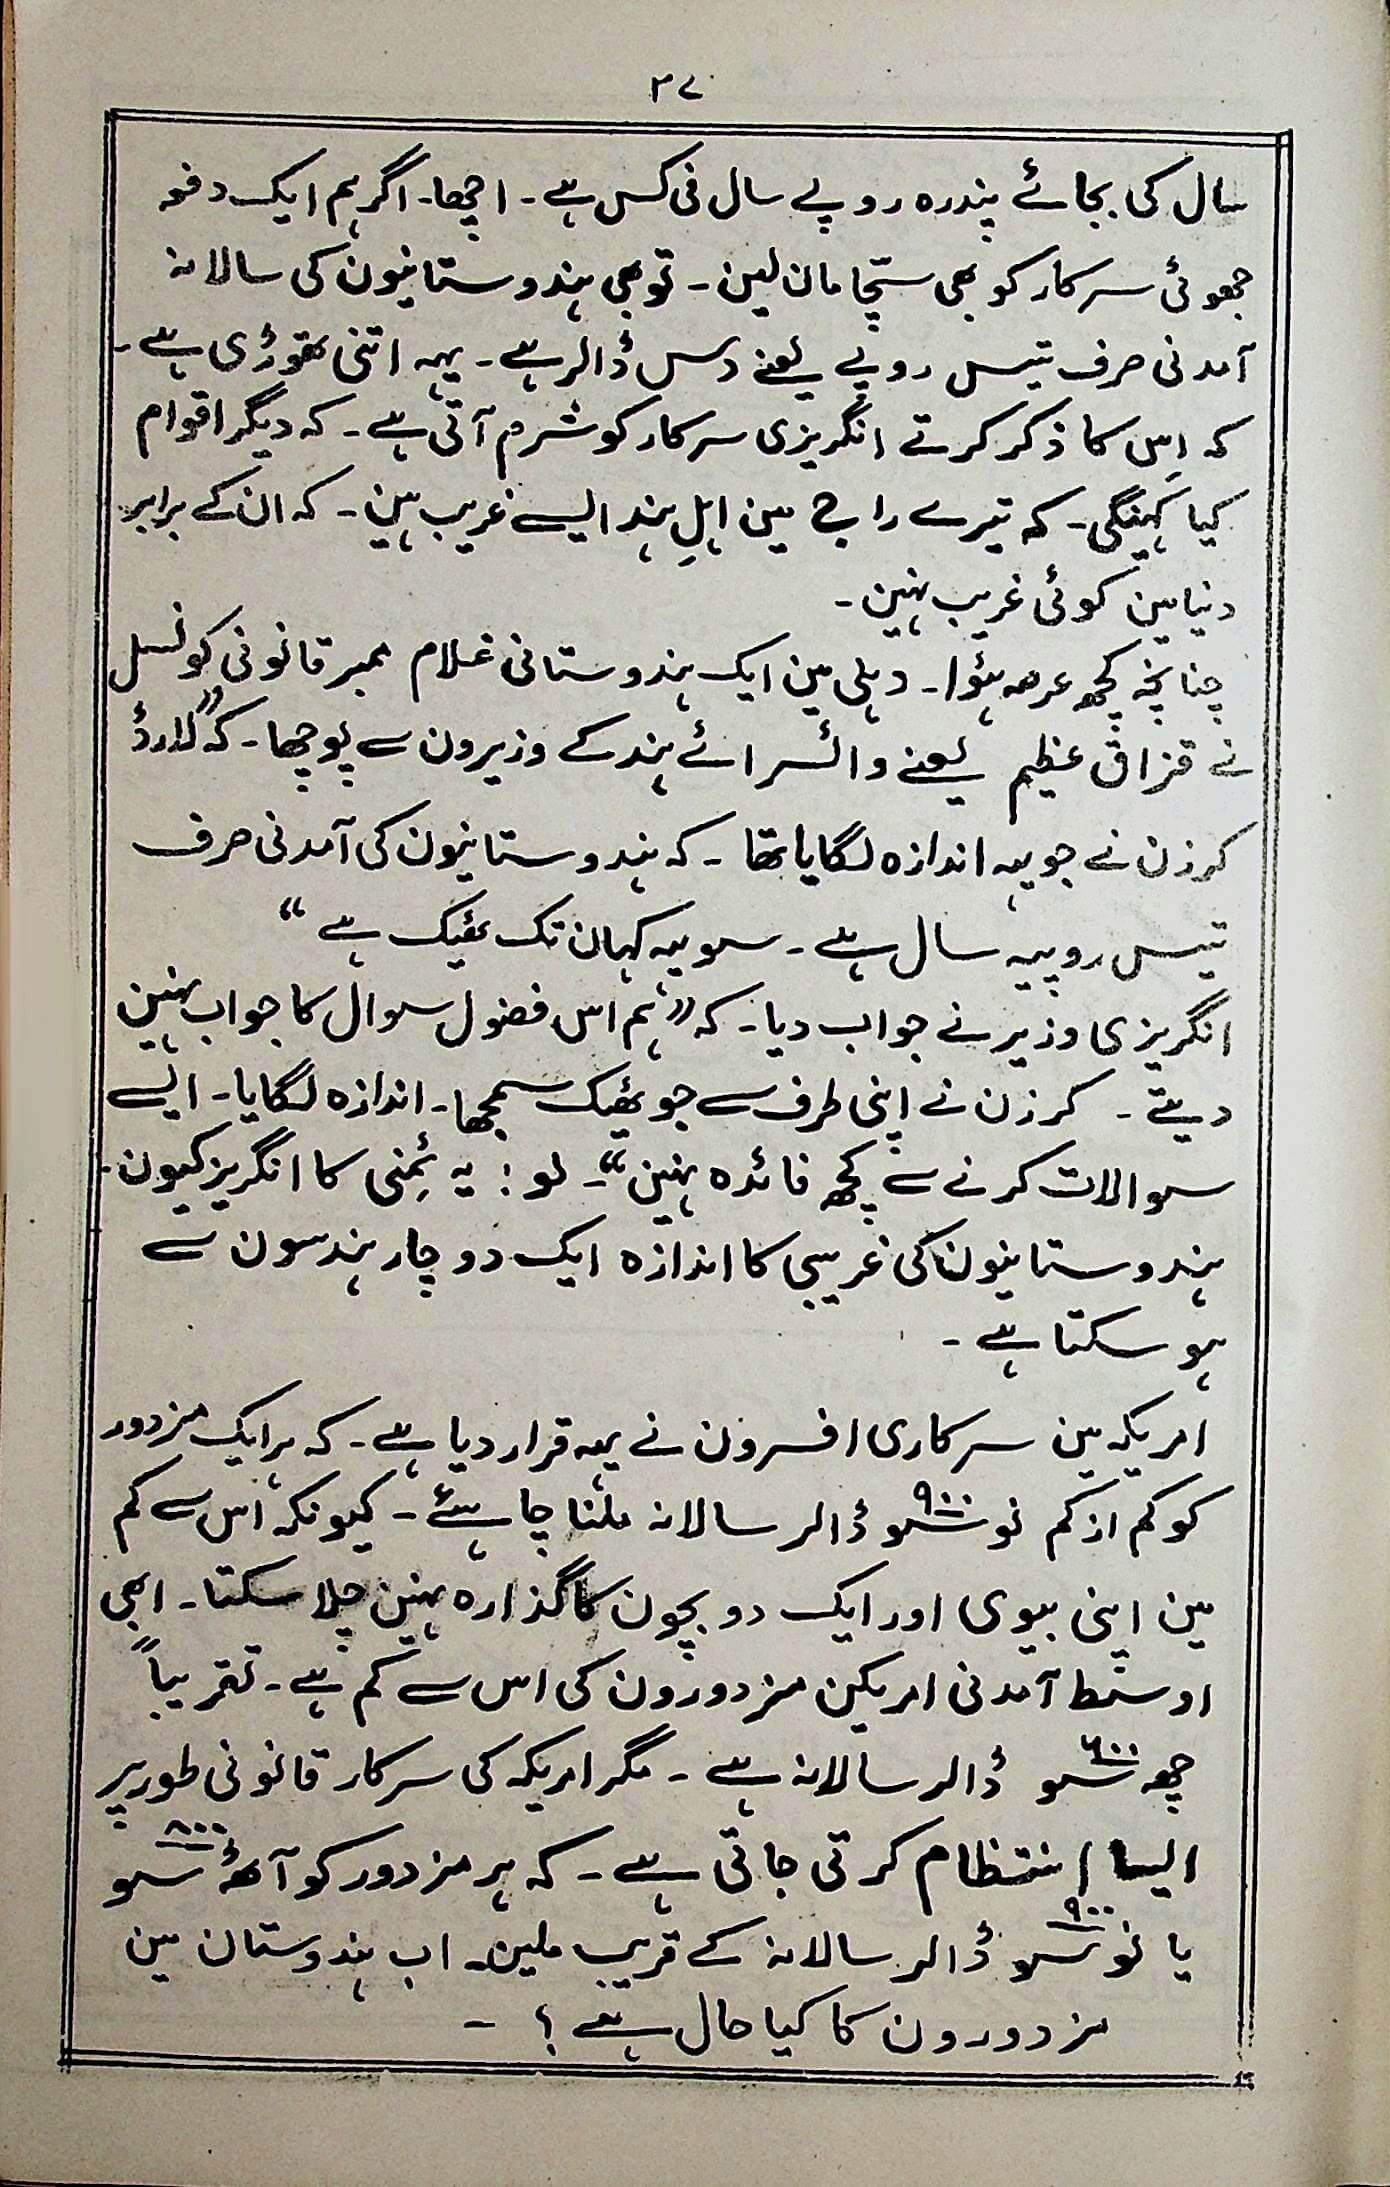 ۳۷
سال کی بجائے پندرہ روپے سال فی کس ہے ۔ اچھا ۔ اگر ہم ایک دفعہ
جھوٹی سرکار کو بھی سچّا مان لین ۔ تو بھی ہندوستانیون کی سالانہ
آمدنی صرف تیس روپے یعنے دس ڈالر ہے ۔ یہہ اتنی تھوڑی ہے ۔
کہ اِس کا ذکر کرتے انگریزی سرکار کو شرم آتی ہے ۔ کہ دیگر اقوام
کیا کہینگی ۔ کہ تیرے راج مین اہلِ ہند ایسے غریب ہین ۔ کہ ان کے برابر
دنیا مین کوئی غریب نہین ۔
چنانچہ کچھ عرصہ ہؤا ۔ دہلی مین ایک ہندوستانی غلام ممبر قانونی کونسل
نے قزاق عظیم یعنے وائسرائے ہند کے وزیرون سے پوچھا ۔ کہ ”لارڈ
کرزن نے جو یہہ اندازہ لگایا تھا ۔ کہ ہندوستانیون کی آمدنی صرف
تیس روپیہ سال ہے ۔ سو یہہ کہان تک ٹھیک ہے “
انگریزی وزیر نے جواب دیا ۔ کہ ”ہم اس فضول سوال کا جواب نہین
دیتے ۔ کرزن نے اپنی طرف سے جو ٹھیک سمجھا ۔ اندازہ لگایا ۔ ایسے
سوالات کرنے سے کچھ فائدہ نہین“ ۔ لو ! یہ ہے کا انگریز کیون ۔
ہندوستانیون کی غریبی کا اندازہ ایک دو چار ہندسون سے
ہو سکتا ہے ۔
امریکہ مین سرکاری افسرون نے یہہ قرار دیا ہے ۔ کہ ہر ایک مزدور
کو کم از کم نو سو ۹۰۰ ڈالر سالانہ ملنا چاہیئے ۔ کیونکہ اس سے کم
مین اپنی بیوی اور ایک دو بچون کا گذارہ نہین چلا سکتا ۔ ابھی
اوسط آمدنی امریکن مزدورون کی اس سے کم ہے ۔ تقریباً
چھہ سو ۶۰۰ ڈالر سالانہ ہے ۔ مگر امریکہ کی سرکار قانونی طور پر
ایسا انتظام کرتی جاتی ہے ۔ کہ ہر مزدور کو آٹھ سو ۸۰۰
یا نو سو ۹۰۰ ڈالر سالانہ کے قریب ملین ۔ اب ہندوستان مین
مزدورون کا کیا حال ہے ؟ ۔